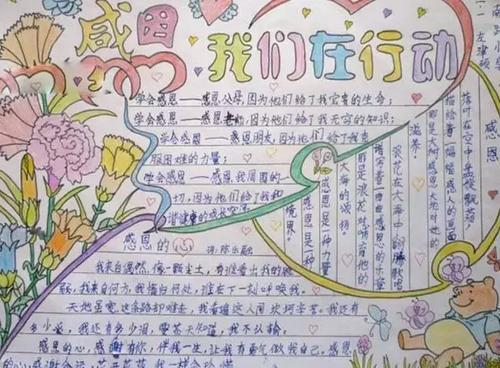 感恩
我们在行动
学会感恩——感恩父母,因为他们给了我宝贵的生命;
学会感恩——感恩老师,因为他们给了我无穷的知识;
学会感恩——感恩朋友,因为他们给了我克
服困难的力量;
学会感恩——感恩我周围的一
切,因为他们给了我和
谐健康的成长空间。
感恩
落叶在空中盘旋飘荡,
描绘着一幅幅感人的画面
那是大树感恩大地对她的
滋养。
浪花在大海中翻腾歌唱
谱写着一曲曲感恩的乐章
那是浪花对哺育他的
大海的诚挚。
感恩是一种力量
感恩是一种
境界。
感恩的心
词:陈乐融
我来自偶然,像一颗尘土,有谁看出我的脆
弱,我来自何方,我情归何处,谁在下一刻呼唤我。
天地虽宽,这条路却难走,我看遍这人间坎坷辛苦。我还有
多少爱,我还有多少泪,要苍天知道,我不认输。
感恩的心,感谢有你,伴我一生,让我有勇气做我自己。感恩
的心,感谢命运,花开花落,我一样会珍惜